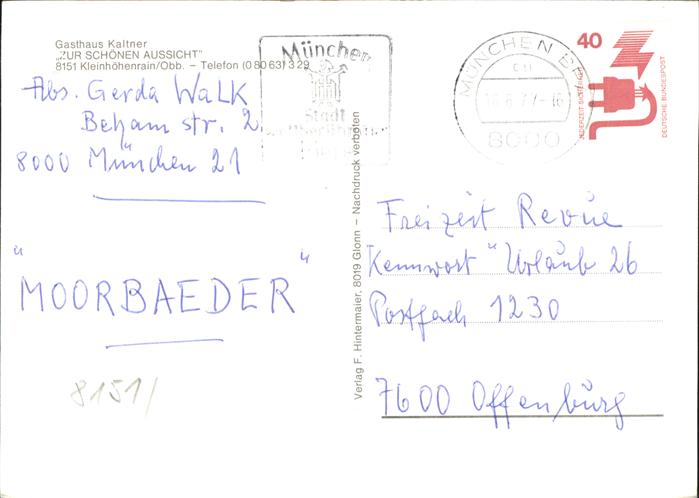 Gasthaus Kaltner
„ZUR SCHÖNEN AUSSICHT"
8151 Kleinhöhenrain/Obb. – Telefon (0 80 63) 3 29
Abs. Gerda WaLK
Beham str. 2
8000 München 21
"MOORBAEDER"
8151/
München
Stadt
MÜNCHEN
8000
40
JEDERZEIT SICHERHEIT
DEUTSCHE BUNDESPOST
Verlag F. Hintermaier, 8019 Glonn – Nachdruck verboten
Freizeit Revue
Kennwort "Urlaub 26
Postfach 1230
7600 Offenburg